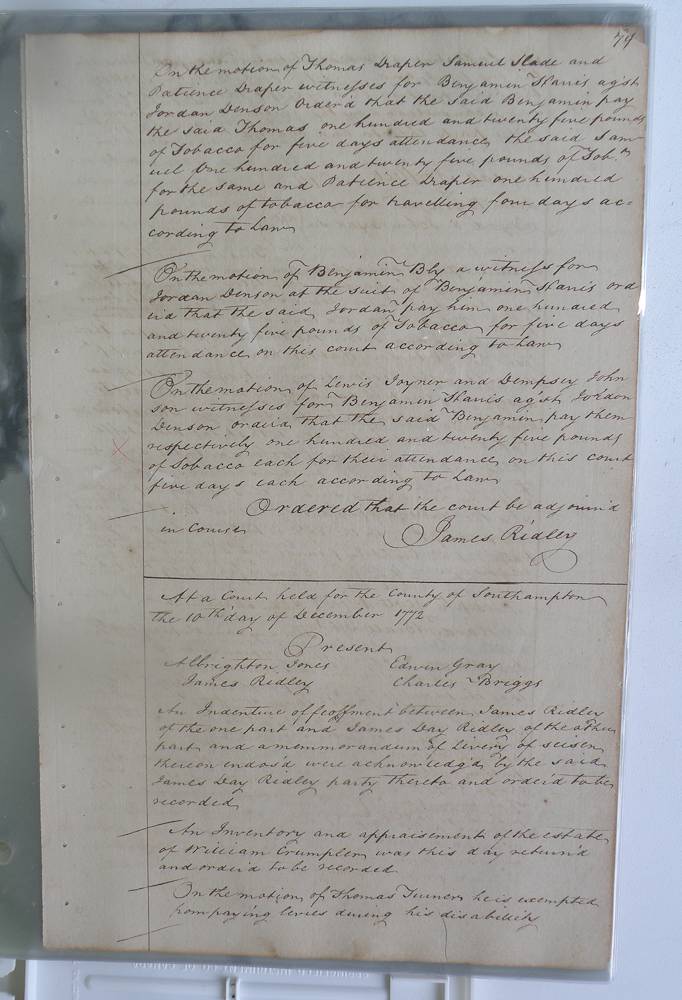 79
On the motion of Thomas Draper Samuel Slade and
Patience Draper witnesses for Benjamin Travis agst
Jordan Denson Order'd that the said Benjamin pay
the said Thomas one hundred and twenty five pounds
of Tobacco for five days attendance the said Sam
uel One hundred and twenty five pounds of Tob.o
for the same and Patience Draper one hundred
pounds of tobacco for travelling four days ac=
cording to Law
On the motion of Benjamin Bly a witness for
Jordan Denson at the suit of Benjamin Travis ord
er'd that the said Jordan pay him one hundred
and twenty five pounds of Tobacco for five days
attendance on this court according to Law
On the motion of Lewis Joyner and Dempsey John
son witnesses for Benjamin Travis agst Jordon
Denson order'd that the said Benjamin pay them
respectively one hundred and twenty five pounds
of Tobacco each for their attendance on this court
five days each according to Law
Ordered that the court be adjourn'd
in Course
James Ridley
At a Court held for the County of Southampton
the 10th day of December 1772
Present
Albrighton Jones Edwin Gray
James Ridley Charles Briggs
An Indenture of feoffment between James Ridley
of the one part and James Day Ridley of the other
part and a memmorandum of Livery of seisen
thereon endors'd were acknowledg'd by the said
James Day Ridley party thereto and order'd to be
recorded
An Inventory and appraisement of the estate
of William Crumpler was this day return'd
and order'd to be recorded
On the motion of Thomas Turner he is exempted
from paying levies during his disability